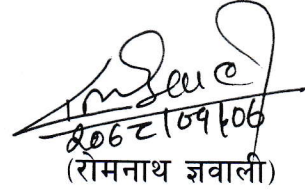 २०६८/०९/०६
(रोमनाथ ज्ञवाली)